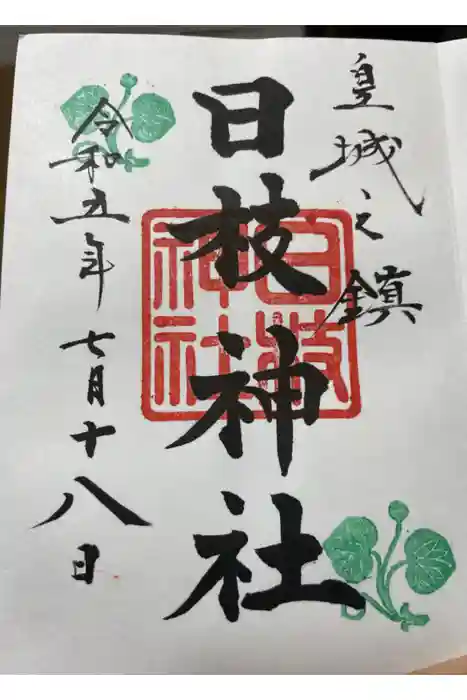 皇城之鎮
日枝神社
日枝神社
令和五年七月十八日